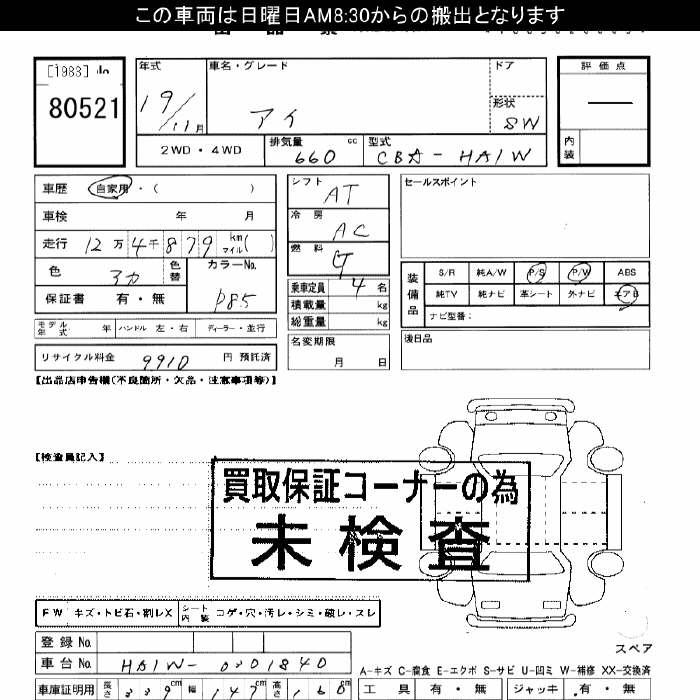 この車両は日曜日AM8:30からの搬出となります
[1983]
80521
年式 車名・グレード ドア 評価点
19/11月 アイ 形状 SW
2WD・4WD 排気量 660 cc 型式 CBA-HA1W 内装
車歴 自家用・( )
シフト AT
セールスポイント
車検 年 月
冷房 AC
走行 12万4千879 km マイル( )
燃料 G
色 アカ 色替 カラーNo. P85
乗車定員 4名
装備品 S/R 純A/W P/S P/W ABS
保証書 有・無
積載量 kg
純TV 純ナビ 革シート 外ナビ エアB
総重量 kg
ナビ型番:
モデル年式 年 ハンドル 左・右 ディーラー・並行
名変期限 月 日
後日品
リサイクル料金 9910 円 預託済
【出品店申告欄(不良箇所・欠品・注意事項等)】
【検査員記入】
買取保証コーナーの為
未検査
FW キズ・トビ石・割レX シート内装 コゲ・穴・汚レ・シミ・破レ・スレ
登録No.
スペア
車台No. HA1W-0301840
A-キズ C-腐食 E-エクボ S-サビ U-凹ミ W-補修 XX-交換済
車庫証明用 長さ 339cm 幅 147cm 高さ 160cm 工具 有・無 ジャッキ 有・無